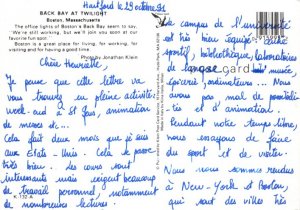 Hartford le 29 octobre 81
BACK BAY AT TWILIGHT
Boston, Massachusetts
The office lights of Boston's Back Bay seem to say,
"We're still working, but we'll join you soon at our
favorite fun spot."
Boston is a great place for living, for working, for
visiting and for having a good time.
Photo by Jonathan Klein
Chère Henriette,
Je pense que cette lettre va
vous trouver en pleine activité.
week-end à St Jans, animation
de messes de...
Cela fait deux mois que je suis
aux Etats-Unis. Cela se passe
très bien. Les cours sont
intéressants mais exigent beaucoup
de travail personnel, notamment
de nombreuses lectures.
K-732-A
Le campus de l'université
est très bien équipé : salle
sportif, bibliothèque, laboratoires
de langue, musée
(concerts), ordinateurs... Nous
avons pas mal de possibili-
tés et d'animation.
Pendant notre temps libre,
nous essayons de faire
du sport et de visiter.
Nous nous sommes rendus
à New-York et Boston,
qui sont des villes très